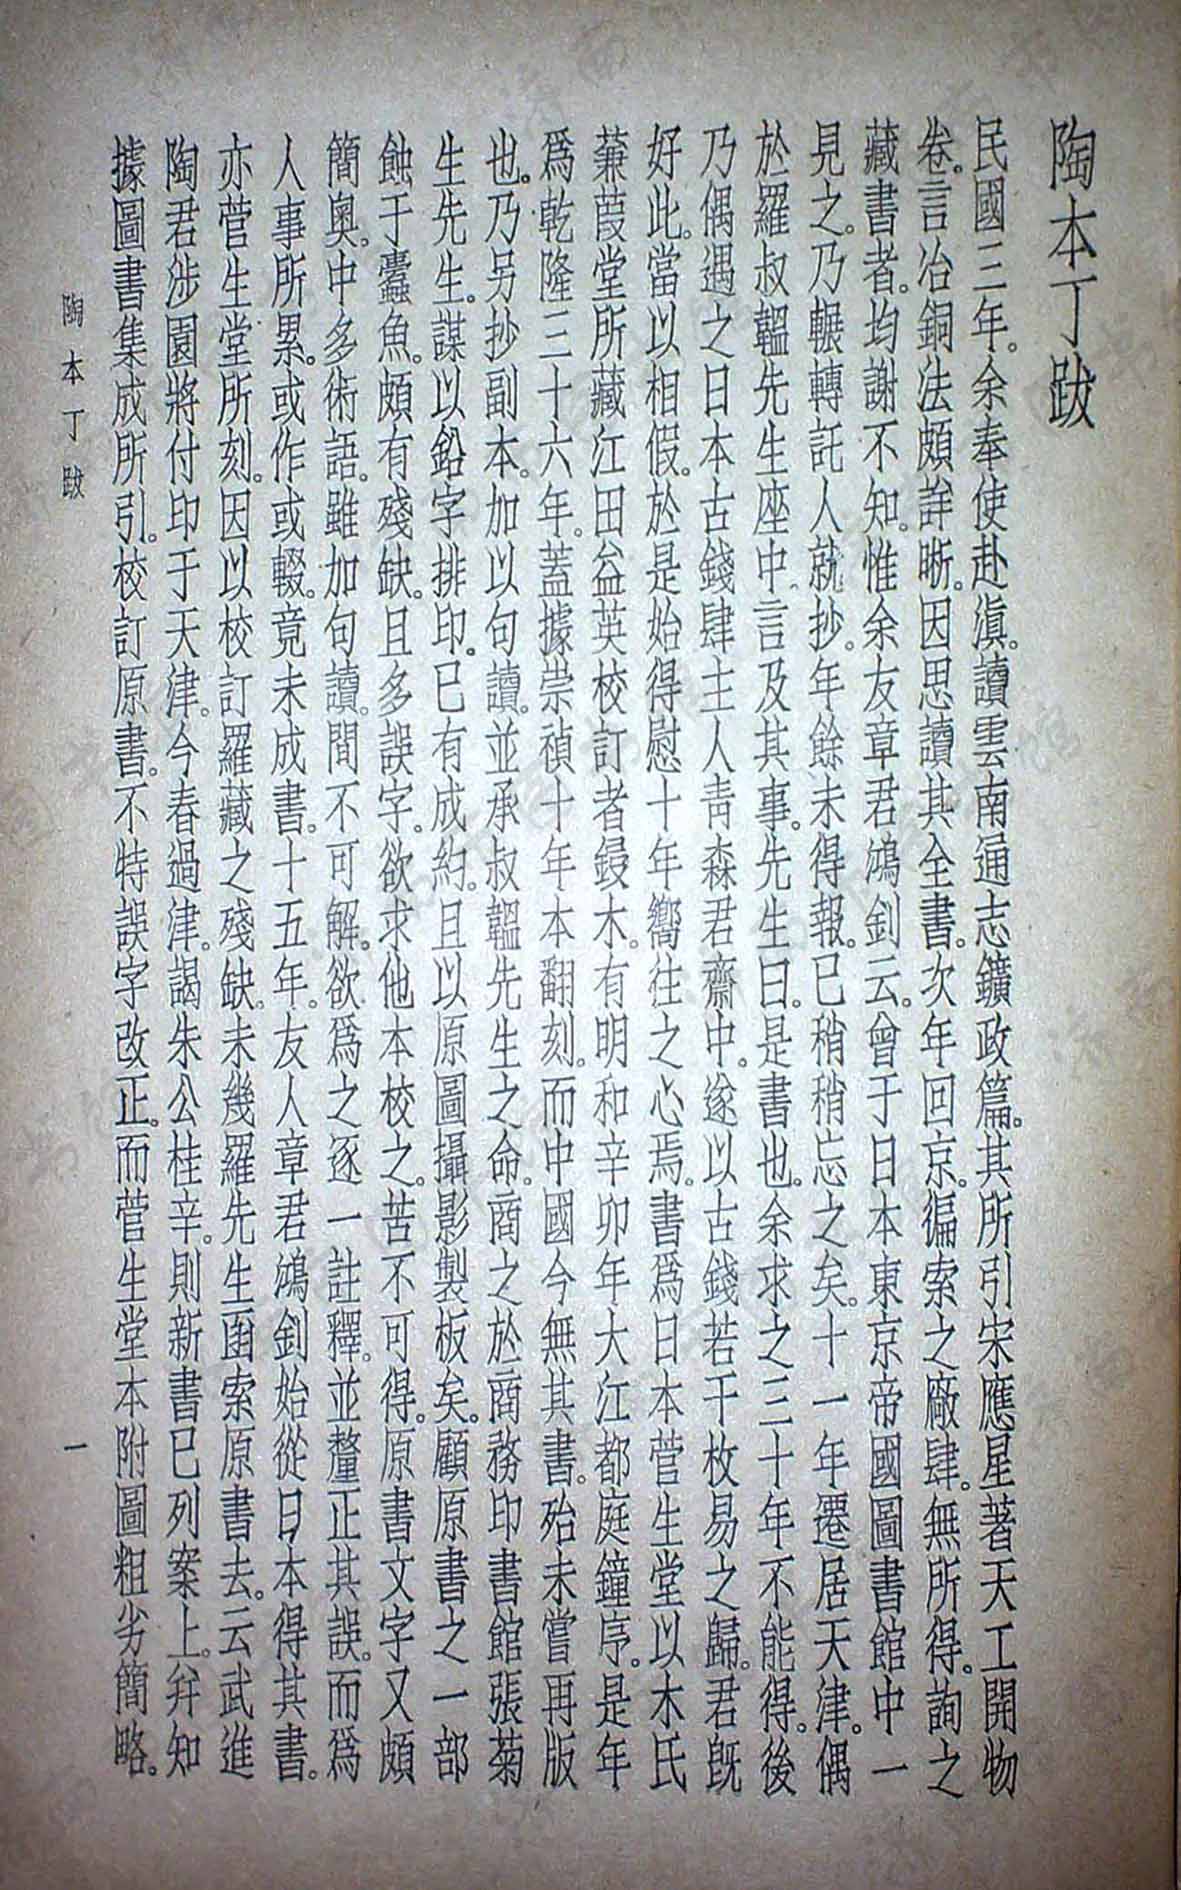 陶本丁跋
民國三年。余奉使赴滇。讀雲南通志鑛政篇。其所引宋應星著天工開物
卷。言冶銅法頗詳晰。因思讀其全書。次年回京。徧索之廠肆。無所得。詢之
藏書者。均謝不知。惟余友章君鴻釗云。曾于日本東京帝國圖書館中一
見之。乃輾轉託人就抄。年餘未得報。已稍稍忘之矣。十一年遷居天津。偶
於羅叔韞先生座中。言及其事。先生曰。是書也。余求之三十年不能得。後
乃偶遇之日本古錢肆主人青森君齋中。遂以古錢若干枚易之歸。君旣
好此。當以相假。於是始得慰十年嚮往之心焉。書爲日本菅生堂以木氏
蒹葭堂所藏江田益英校訂者鋟木。有明和辛卯年大江都庭鐘序。是年
爲乾隆三十六年。蓋據崇禎十年本翻刻。而中國今無其書。殆未嘗再版
也。乃另抄副本。加以句讀。並承叔韞先生之命。商之於商務印書館張菊
生先生。謀以鉛字排印。已有成約。且以原圖攝影製板矣。顧原書之一部
蝕于蠹魚。頗有殘缺。且多誤字。欲求他本校之。苦不可得。原書文字又頗
簡奧。中多術語。雖加句讀。間不可解。欲爲之逐一註釋。並釐正其誤。而爲
人事所累。或作或輟。竟未成書。十五年。友人章君鴻釗始從日本得其書。
亦菅生堂所刻。因以校訂羅藏之殘缺。未幾羅先生函索原書去。云武進
陶君涉園將付印于天津。今春過津。謁朱公桂辛。則新書已列案上。幷知
據圖書集成所引。校訂原書。不特誤字改正。而菅生堂本附圖粗劣簡略。
陶本丁跋
一